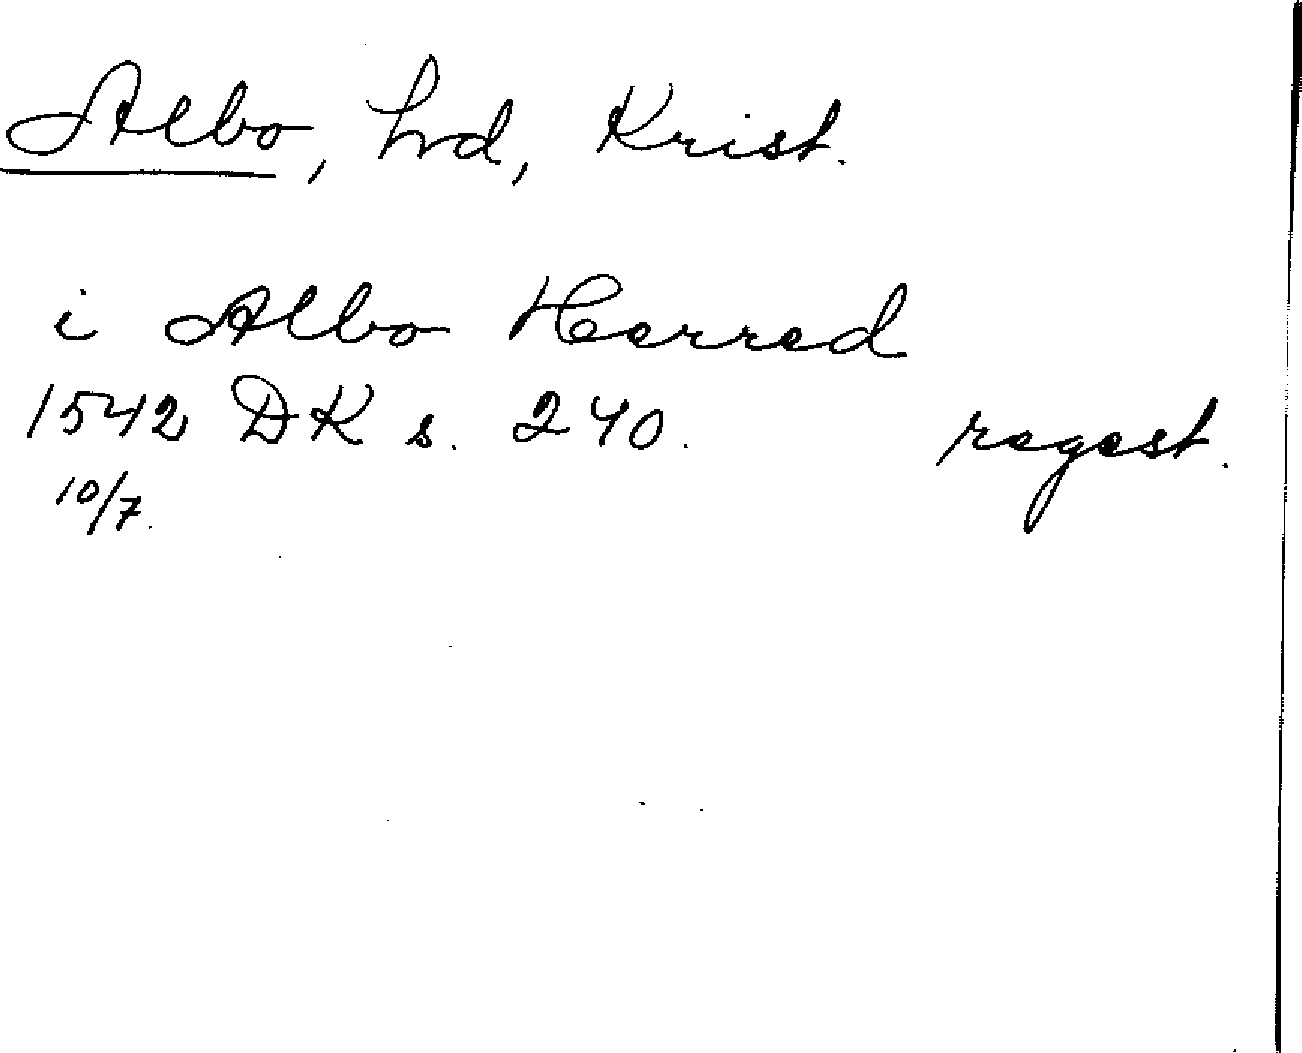 Albo, hd, Krist.
i Albo Herred
1542 DK s. 240. regest.
10/7.